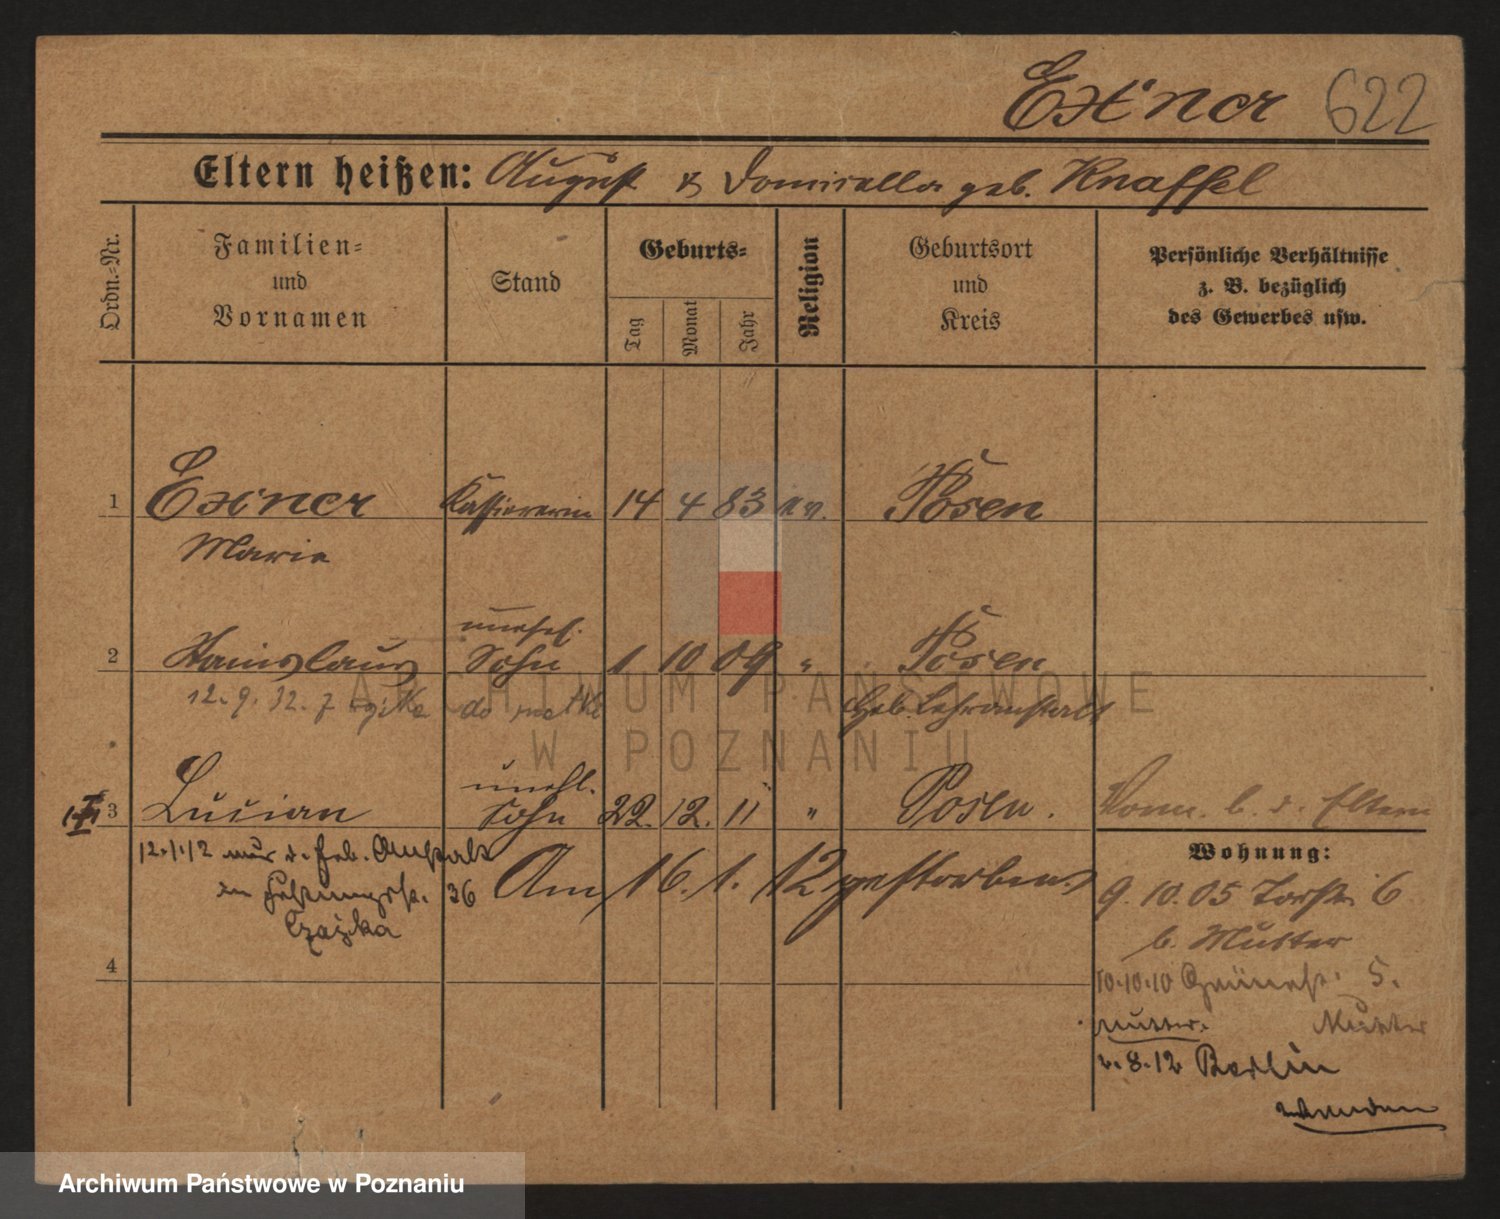 Exner 622
Eltern heißen: August & Domicella geb. Knaffel
Ordn.=Nr.
Familien=
und
Vornamen
Stand
Geburts=
Tag
Monat
Jahr
Religion
Geburtsort
und
Kreis
Persönliche Verhältnisse
z. B. bezüglich
des Gewerbes usw.
1 Exner Kassiererin 14 4 83 Posen
Marie
2 Stanislaus unehel. Sohn 1 10 09 " Posen
12. 9. 32. Geb. Lehranstalt
3 Lucian unehl. Sohn 22. 12. 11 " Posen. b. d. Eltern
12.1.12 aus d. Heb. Anstalt
36 Am 16. 1. 12 gestorben
Czajka
4
Wohnung:
9. 10. 05 Torstr. 6
b. Mutter
10.10.10 5.
Mutter. Mutter
2.8.12 Berlin
wenden
ARCHIWUM PAŃSTWOWE
W POZNANIU
Archiwum Państwowe w Poznaniu